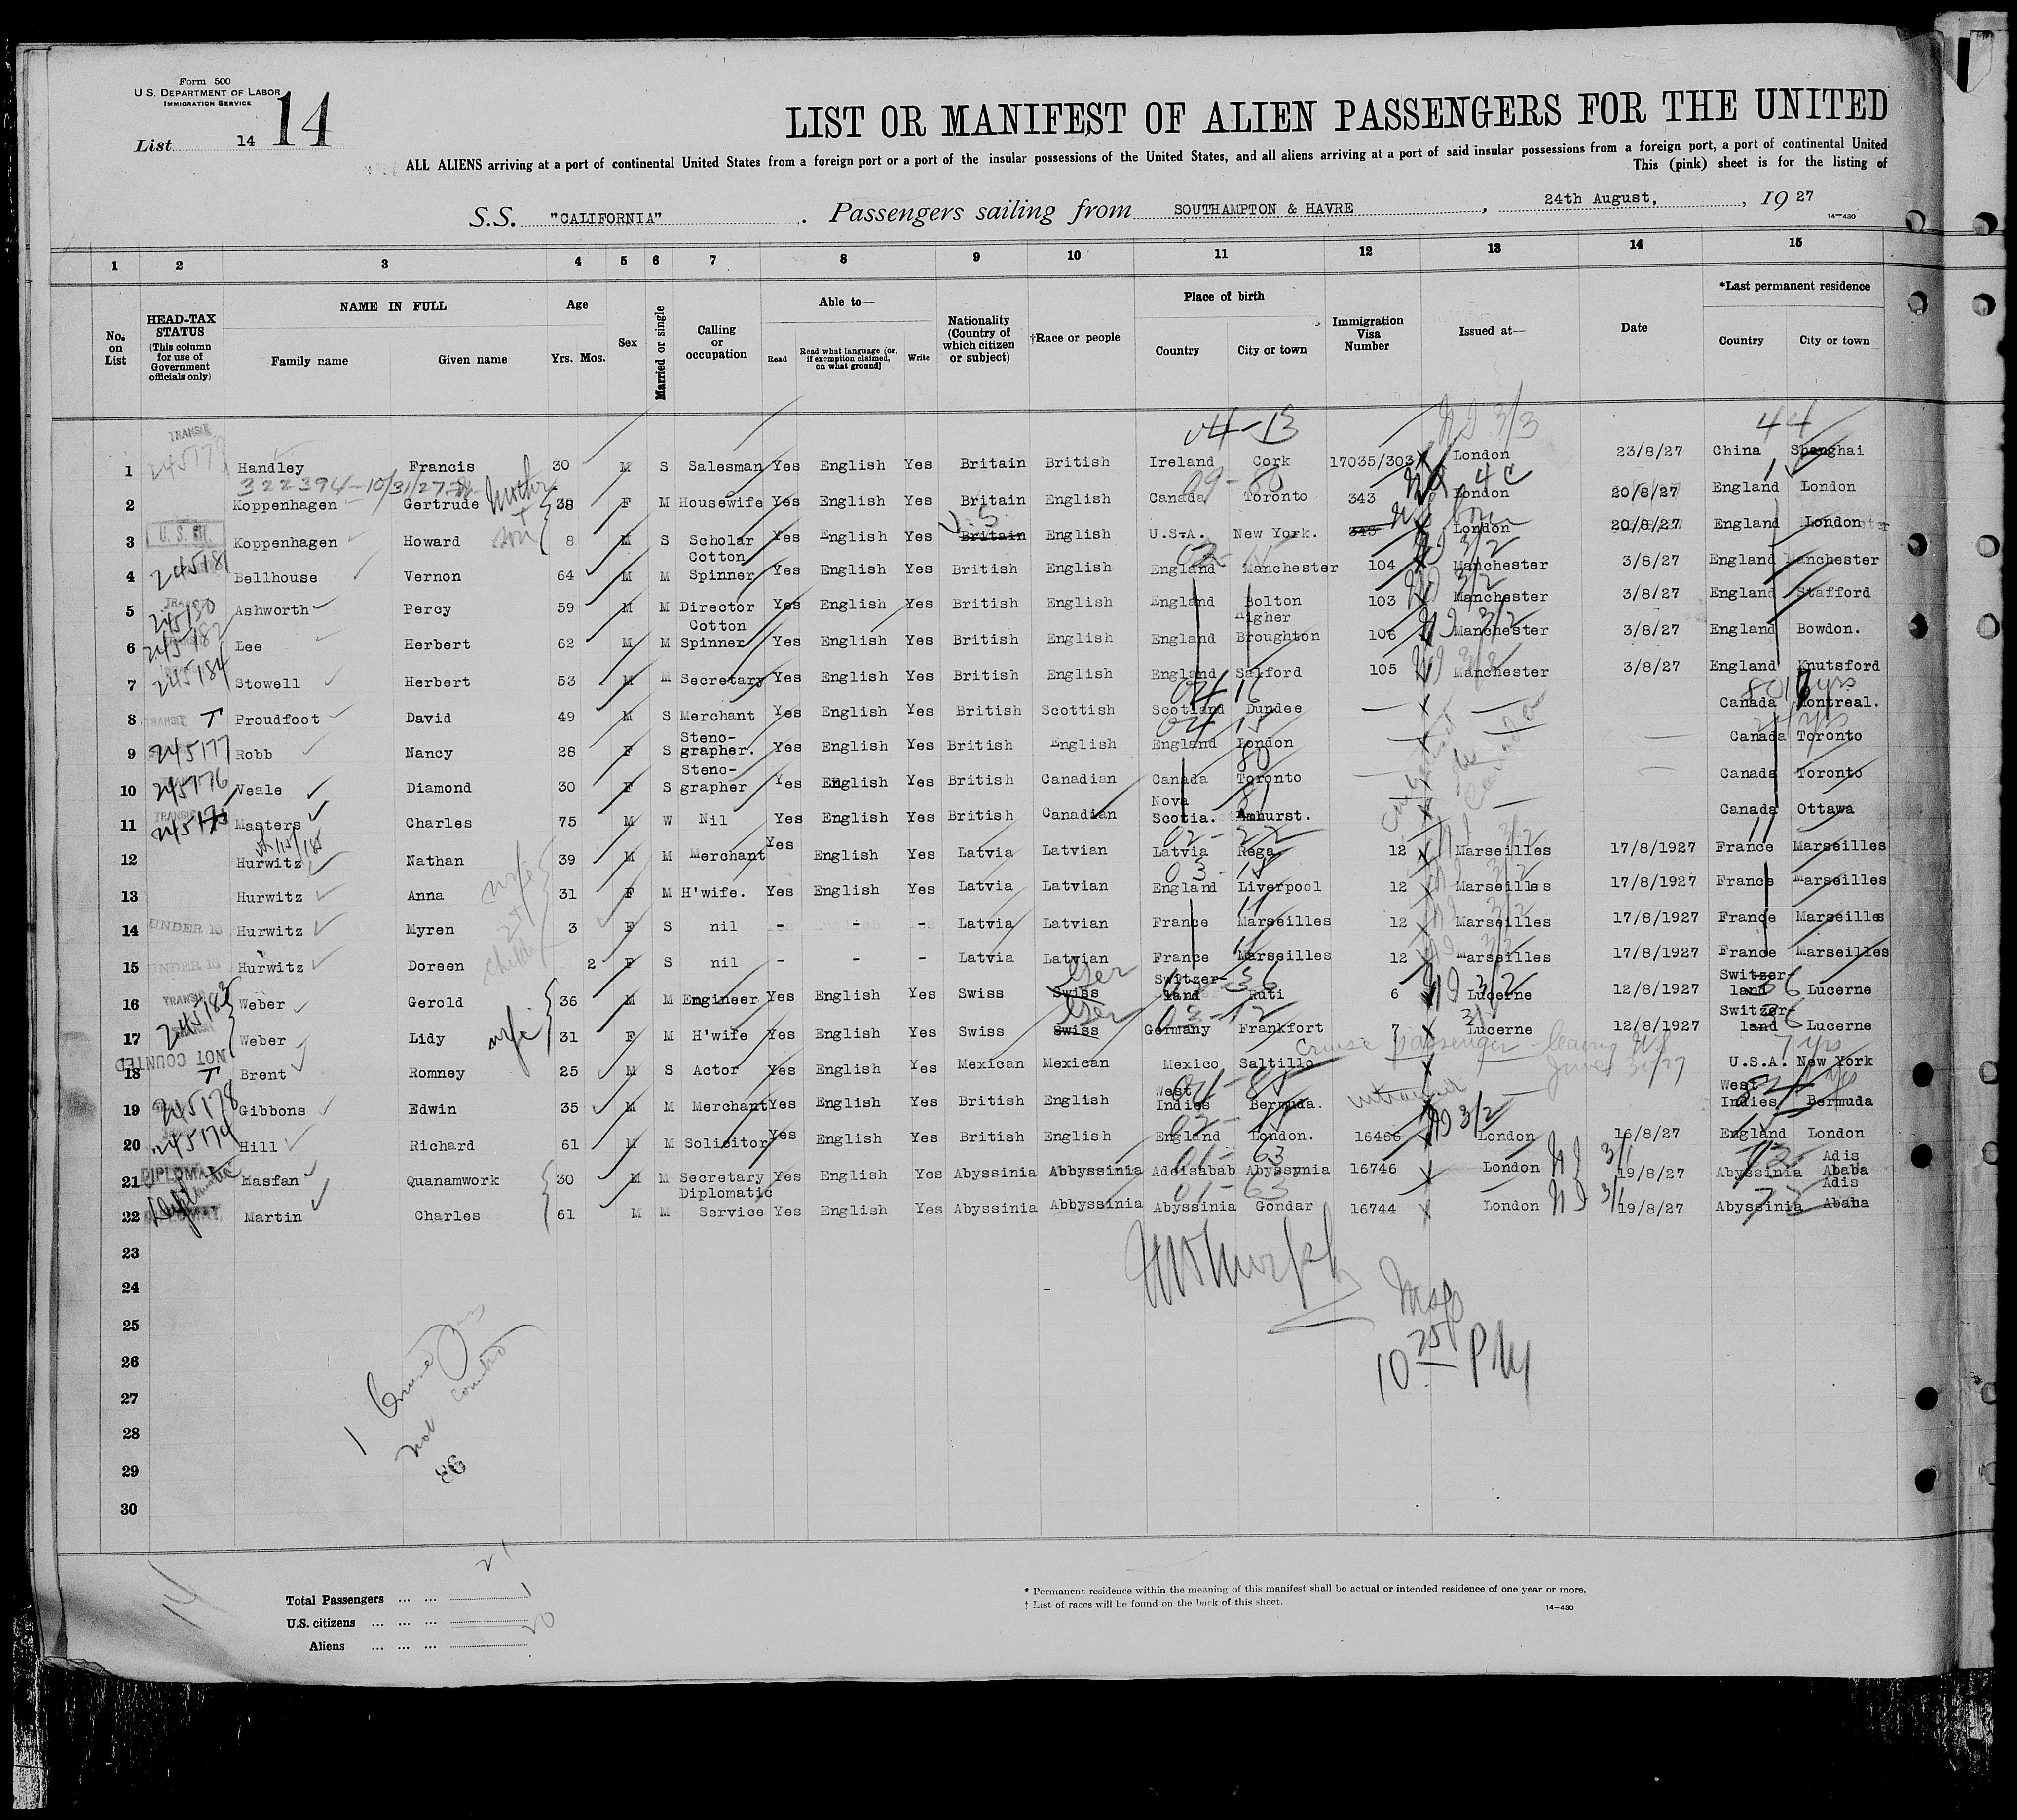 Form 500
U.S. DEPARTMENT OF LABOR
IMMIGRATION SERVICE
List 14 14
LIST OR MANIFEST OF ALIEN PASSENGERS FOR THE UNITED
ALL ALIENS arriving at a port of continental United States from a foreign port or a port of the insular possessions of the United States, and all aliens arriving at a port of said insular possessions from a foreign port, a port of continental United
This (pink) sheet is for the listing of
S.S. "CALIFORNIA". Passengers sailing from SOUTHAMPTON & HAVRE, 24th August, , 19 27
14—430
1 2 3 4 5 6 7 8 9 10 11 12 13 14 15
No. on List
HEAD-TAX STATUS (This column for use of Government officials only)
NAME IN FULL
Family name Given name
Age
Yrs. Mos.
Sex
Married or single
Calling or occupation
Able to—
Read Read what language (or, if exemption claimed, on what ground) Write
Nationality (Country of which citizen or subject)
†Race or people
Place of birth
Country City or town
Immigration Visa Number
Issued at—
Date
*Last permanent residence
Country City or town
04-13 NI 3/3 44
1 TRANSIT Handley Francis 30 M S Salesman Yes English Yes Britain British Ireland Cork 17035/303 London 23/8/27 China Shanghai
322394-10/31/27 Mother + son 09-80 4C
2 Koppenhagen Gertrude 38 F M Housewife Yes English Yes Britain English Canada Toronto 343 London 20/8/27 England London
U.S. US born
3 Koppenhagen Howard 8 M S Scholar Yes English Yes Britain English U.S.A. New York. 343 London 20/8/27 England London
4 245181 Bellhouse Vernon 64 M M Cotton Spinner Yes English Yes British English England Manchester 104 Manchester 3/8/27 England Manchester
5 245180 Ashworth Percy 59 M M Director Yes English Yes British English England Bolton 103 Manchester 3/8/27 England Stafford
6 245182 Lee Herbert 62 M M Cotton Spinner Yes English Yes British English England Higher Broughton 106 Manchester 3/8/27 England Bowdon.
7 245184 Stowell Herbert 53 M M Secretary Yes English Yes British English England Salford 105 Manchester 3/8/27 England Knutsford
8 TRANSIT T Proudfoot David 49 M S Merchant Yes English Yes British Scottish Scotland Dundee — — Canada Montreal.
9 245177 Robb Nancy 28 F S Steno-grapher. Yes English Yes British English England London — — Canada Toronto
10 245176 Veale Diamond 30 F S Steno-grapher Yes English Yes British Canadian Canada Toronto — — Canada Toronto
11 245175 Masters Charles 75 M W Nil Yes English Yes British Canadian Nova Scotia. Amhurst. — Canada Ottawa
12 Hurwitz Nathan 39 M M Merchant Yes English Yes Latvia Latvian Latvia Rega 12 Marseilles 17/8/1927 France Marseilles
13 Hurwitz Anna wife 31 F M H'wife. Yes English Yes Latvia Latvian England Liverpool 12 Marseilles 17/8/1927 France Marseilles
14 Hurwitz Myren 3 F S nil - - - Latvia Latvian France Marseilles 12 Marseilles 17/8/1927 France Marseilles
15 Hurwitz Doreen 2 F S nil - - - Latvia Latvian France Marseilles 12 Marseilles 17/8/1927 France Marseilles
16 TRANSIT 245183 Weber Gerold 36 M M Engineer Yes English Yes Swiss Swiss Ger Switzer-land Ruti 6 Lucerne 12/8/1927 Switzer-land Lucerne
17 Weber Lidy wife 31 F M H'wife Yes English Yes Swiss Swiss Ger Germany Frankfort 7 Lucerne 12/8/1927 Switzer-land Lucerne
NOT COUNTED Cruise passenger - leaving US 7 yrs
18 T Brent Romney 25 M S Actor Yes English Yes Mexican Mexican Mexico Saltillo U.S.A. New York
19 245178 Gibbons Edwin 35 M M Merchant Yes English Yes British English West Indies Bermuda. West Indies Bermuda
20 245179 Hill Richard 61 M M Solicitor Yes English Yes British English England London. 16466 London 16/8/27 England London
21 DIPLOMAT Masfan Quanamwork 30 M M Secretary Yes English Yes Abyssinia Abbyssinia Addisabab Abyssynia 16746 London 19/8/27 Abyssinia Adis Ababa
22 DIPLOMAT Martin Charles 61 M M Diplomatic Service Yes English Yes Abyssinia Abbyssinia Abyssinia Gondar 16744 London 19/8/27 Abyssinia Adis Ababa
23
24
25
26
27
28
29
30
10 25 PM
1 Cruise Pass
not counted
Total Passengers 21
U.S. citizens 1
Aliens 20
14
* Permanent residence within the meaning of this manifest shall be actual or intended residence of one year or more.
† List of races will be found on the back of this sheet.
14—430